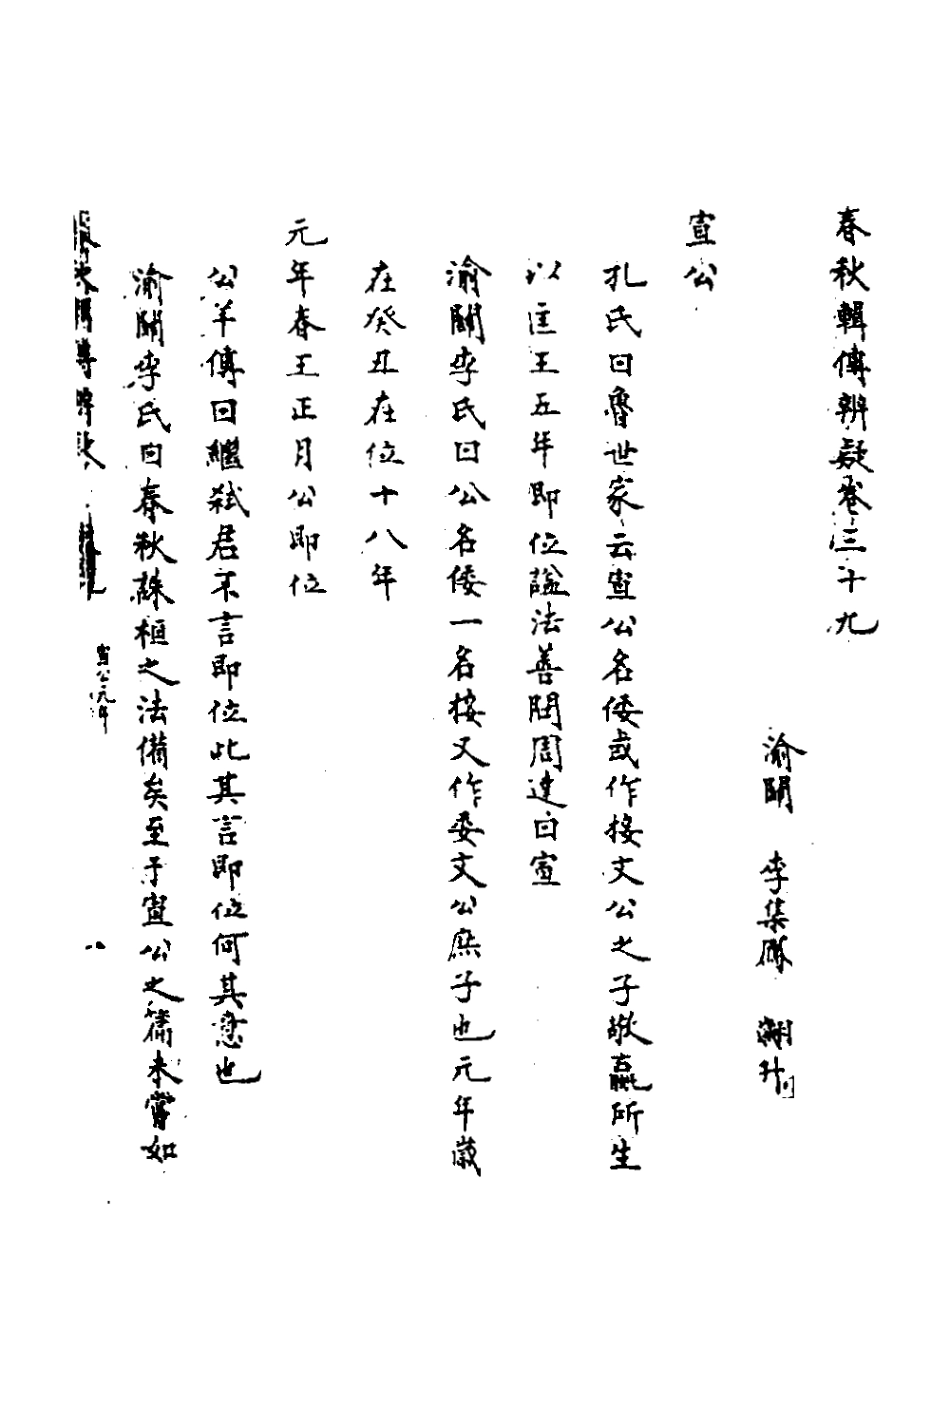 春秋輯傳辨疑卷三十九
渝關　李集鳳　翽升
宣公
孔氏曰魯世家云宣公名倭或作接文公之子敬嬴所生
以匡王五年即位諡法善問周達曰宣
渝關李氏曰公名倭一名接又作委文公庶子也元年歲
在癸丑在位十八年
元年春王正月公即位
公羊傳曰繼弒君不言即位此其言即位何其意也
渝關李氏曰春秋誅桓之法備矣至于宣公之篇未嘗如
春秋輯傳辨疑
宣公元年
八